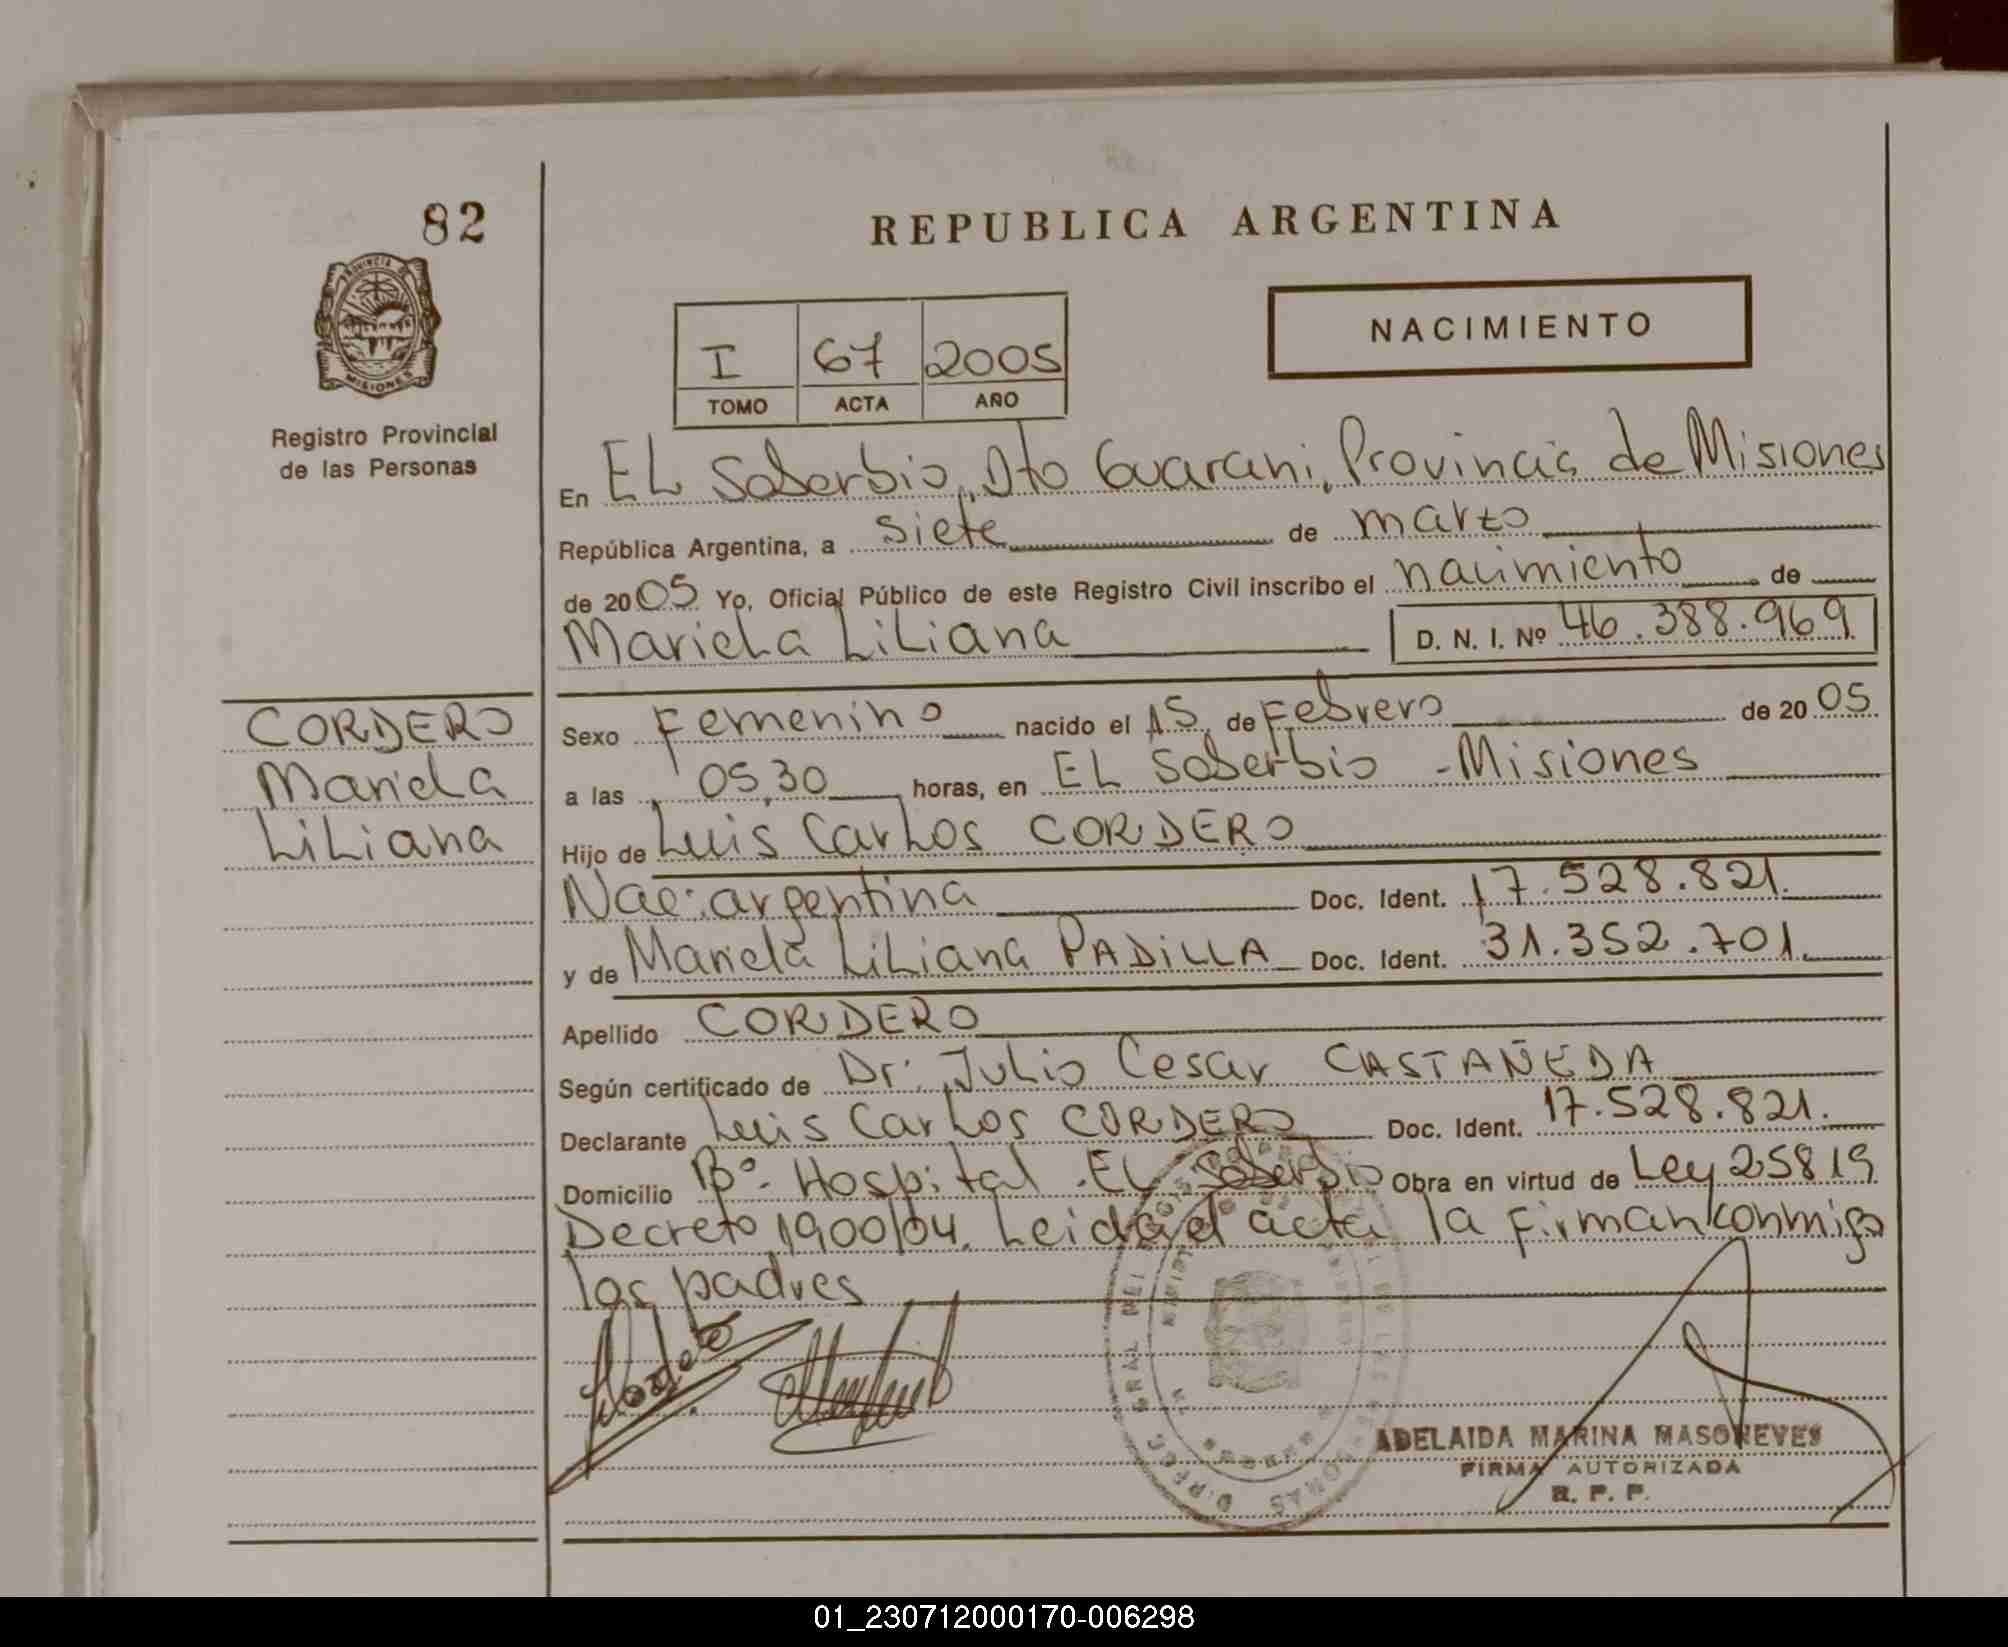 82
PROVINCIA DE
MISIONES
Registro Provincial
de las Personas
REPUBLICA ARGENTINA
I 67 2005
TOMO ACTA AÑO
NACIMIENTO
En EL Soberbio, Dto Guarani, Provincia de Misiones
República Argentina, a siete de marzo
de 2005 Yo, Oficial Público de este Registro Civil inscribo el nacimiento de
Mariela Liliana D. N. I. Nº 46.388.969
CORDERO
Mariela
Liliana
Sexo Femenino nacido el 15 de Febrero de 2005
a las 05,30 horas, en EL Soberbio - Misiones
Hijo de Luis Carlos CORDERO
Nac: argentina Doc. Ident. 17.528.821.
y de Mariela Liliana PADILLA Doc. Ident. 31.352.701.
Apellido CORDERO
Según certificado de Dr. Julio Cesar CASTAÑEDA
Declarante Luis Carlos CORDERO Doc. Ident. 17.528.821.
Domicilio Bº. Hospital. EL Soberbio Obra en virtud de Ley 25819
Decreto 1900/04. Leida el acta la firman conmigo
los padres
ADELAIDA MARINA MASONEVES
FIRMA AUTORIZADA
R. P. P.
01_230712000170-006298